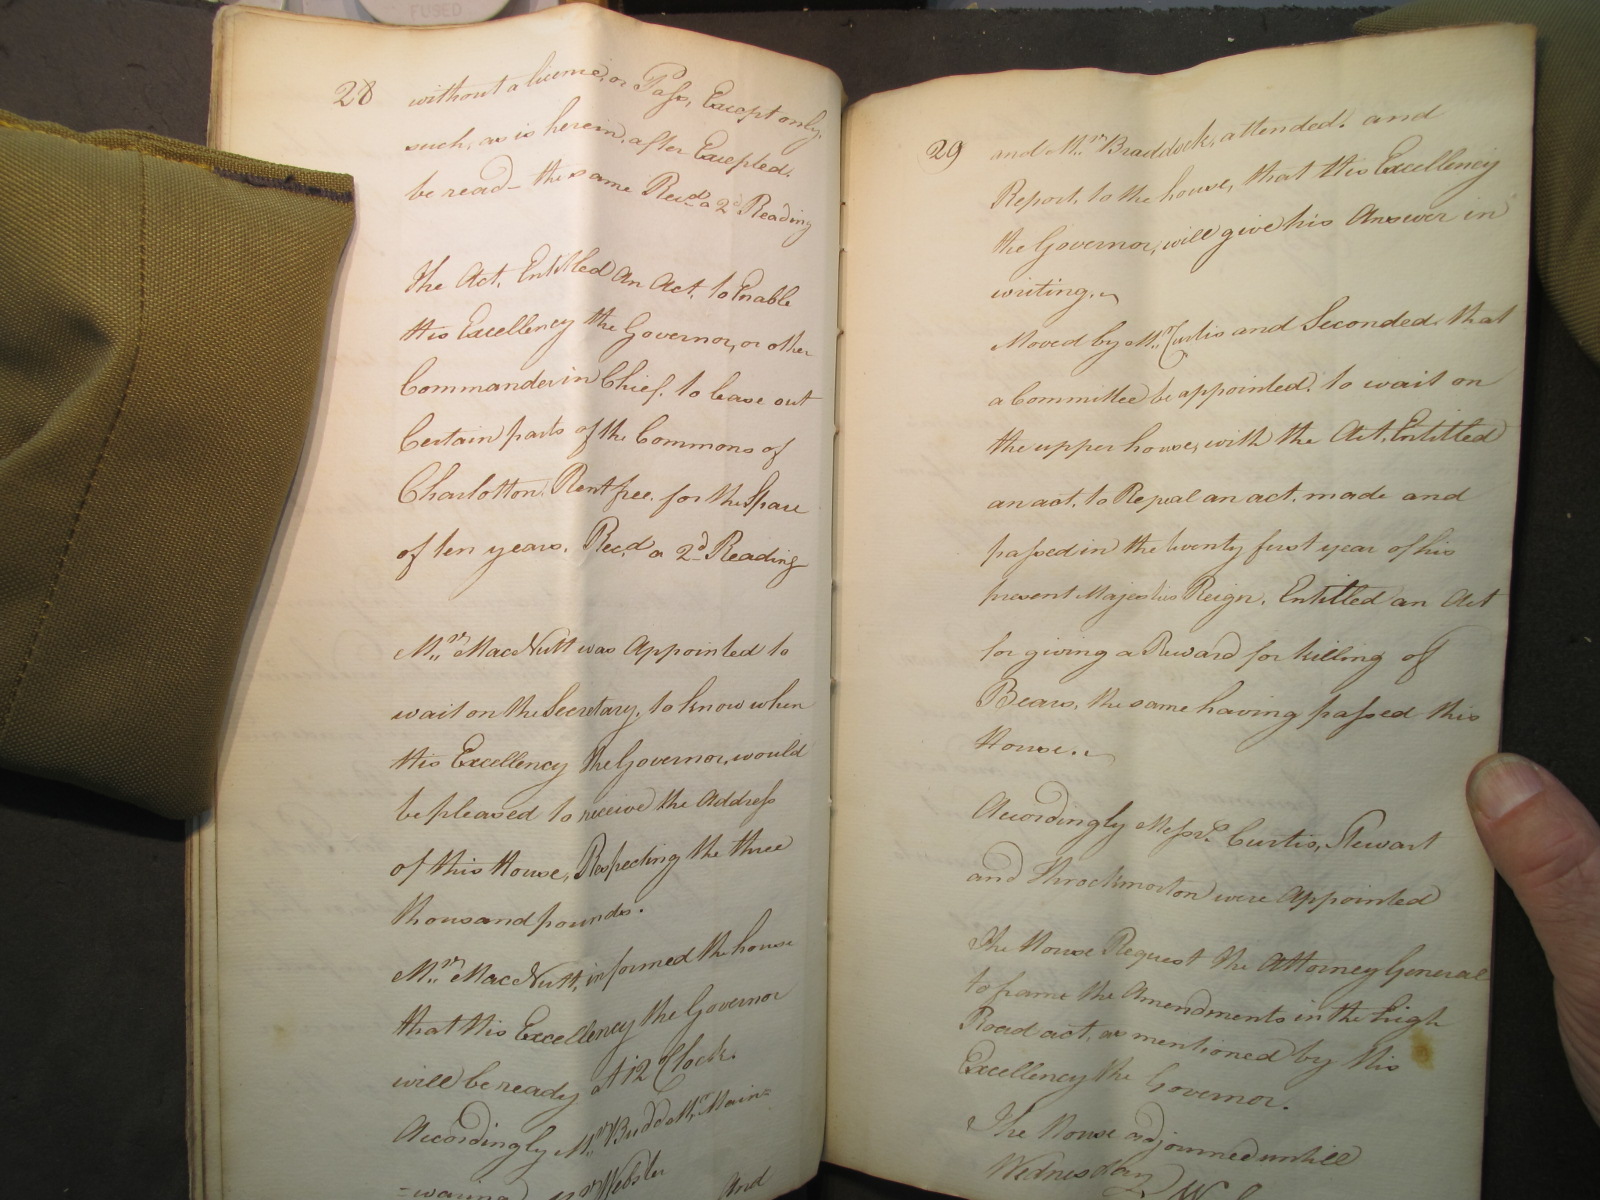 FUSED
28
without a licence, or Pass, Except only,
such, as is herein, after Excepted.
be read - the same Recd. a 2d Reading
The Act, Entitled An Act, to Enable
His Excellency the Governor, or other
Commander in Chief, to lease out
Certain parts of the Commons of
Charlotton, Rent free, for the Space
of ten years. Recd. a 2d Reading
Mr. MacNutt was Appointed to
wait on the Secretary, to know when
His Excellency the Governor, would
be pleased to receive the Address
of this House, Respecting the three
thousand pounds.
Mr. MacNutt, informed the house
that His Excellency the Governor
will be ready at 12 Clock.
Accordingly Mr. Budd Mr. Main=
=waring Mr Webster
And
29
and Mr. Braddock, attended. and
Report, to the house, that His Excellency
the Governor, will give his Answer in
writing.
Moved by Mr. Curtis and Seconded, that
a Committee be appointed. to wait on
the upper house, with the Act, Entitled
an act, to Repeal an act, made and
passed in the twenty first year of his
present Majesties Reign, Entitled an Act
for giving a Reward for killing of
Bears, the same having passed this
House.
Accordingly Messrs. Curtis, Stewart
and Throckmorton were Appointed
The House Request the Attorney General
to frame the Amendments in the high
Road act, as mentioned by His
Excellency the Governor.
The House adjourned untill
Wednesday